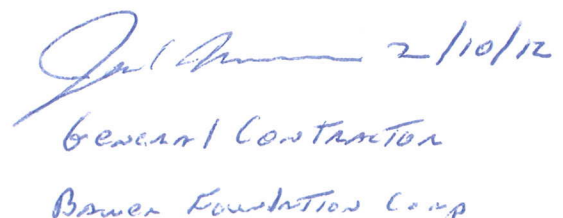 2/10/12
General Contractor
Bauer Foundation Corp